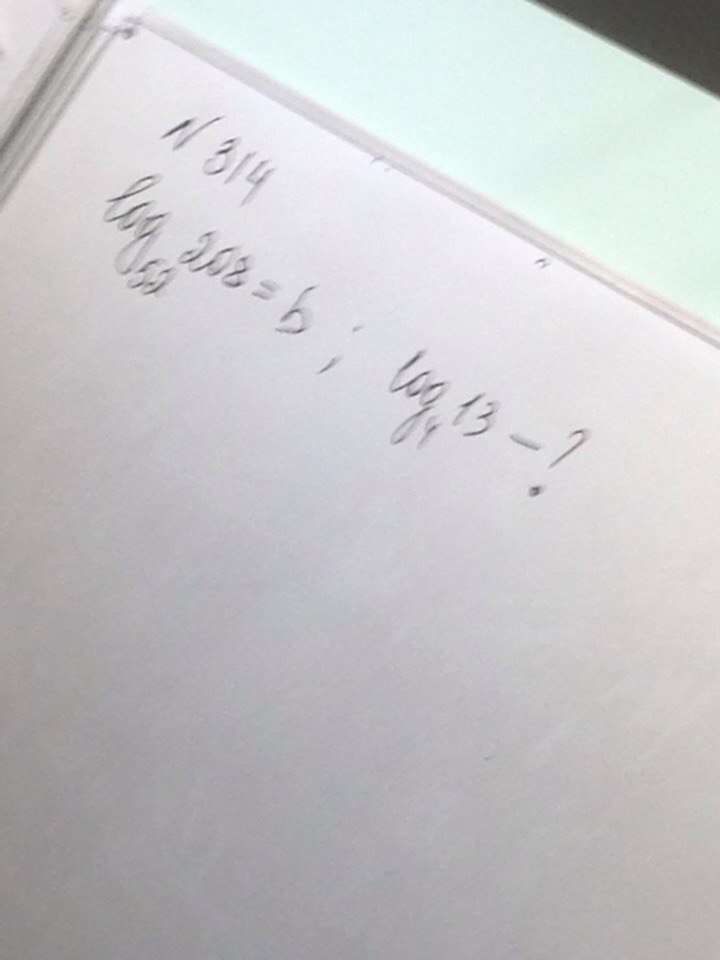 N 314
log₅₂ 208 = b ; log₄ 13 - ?